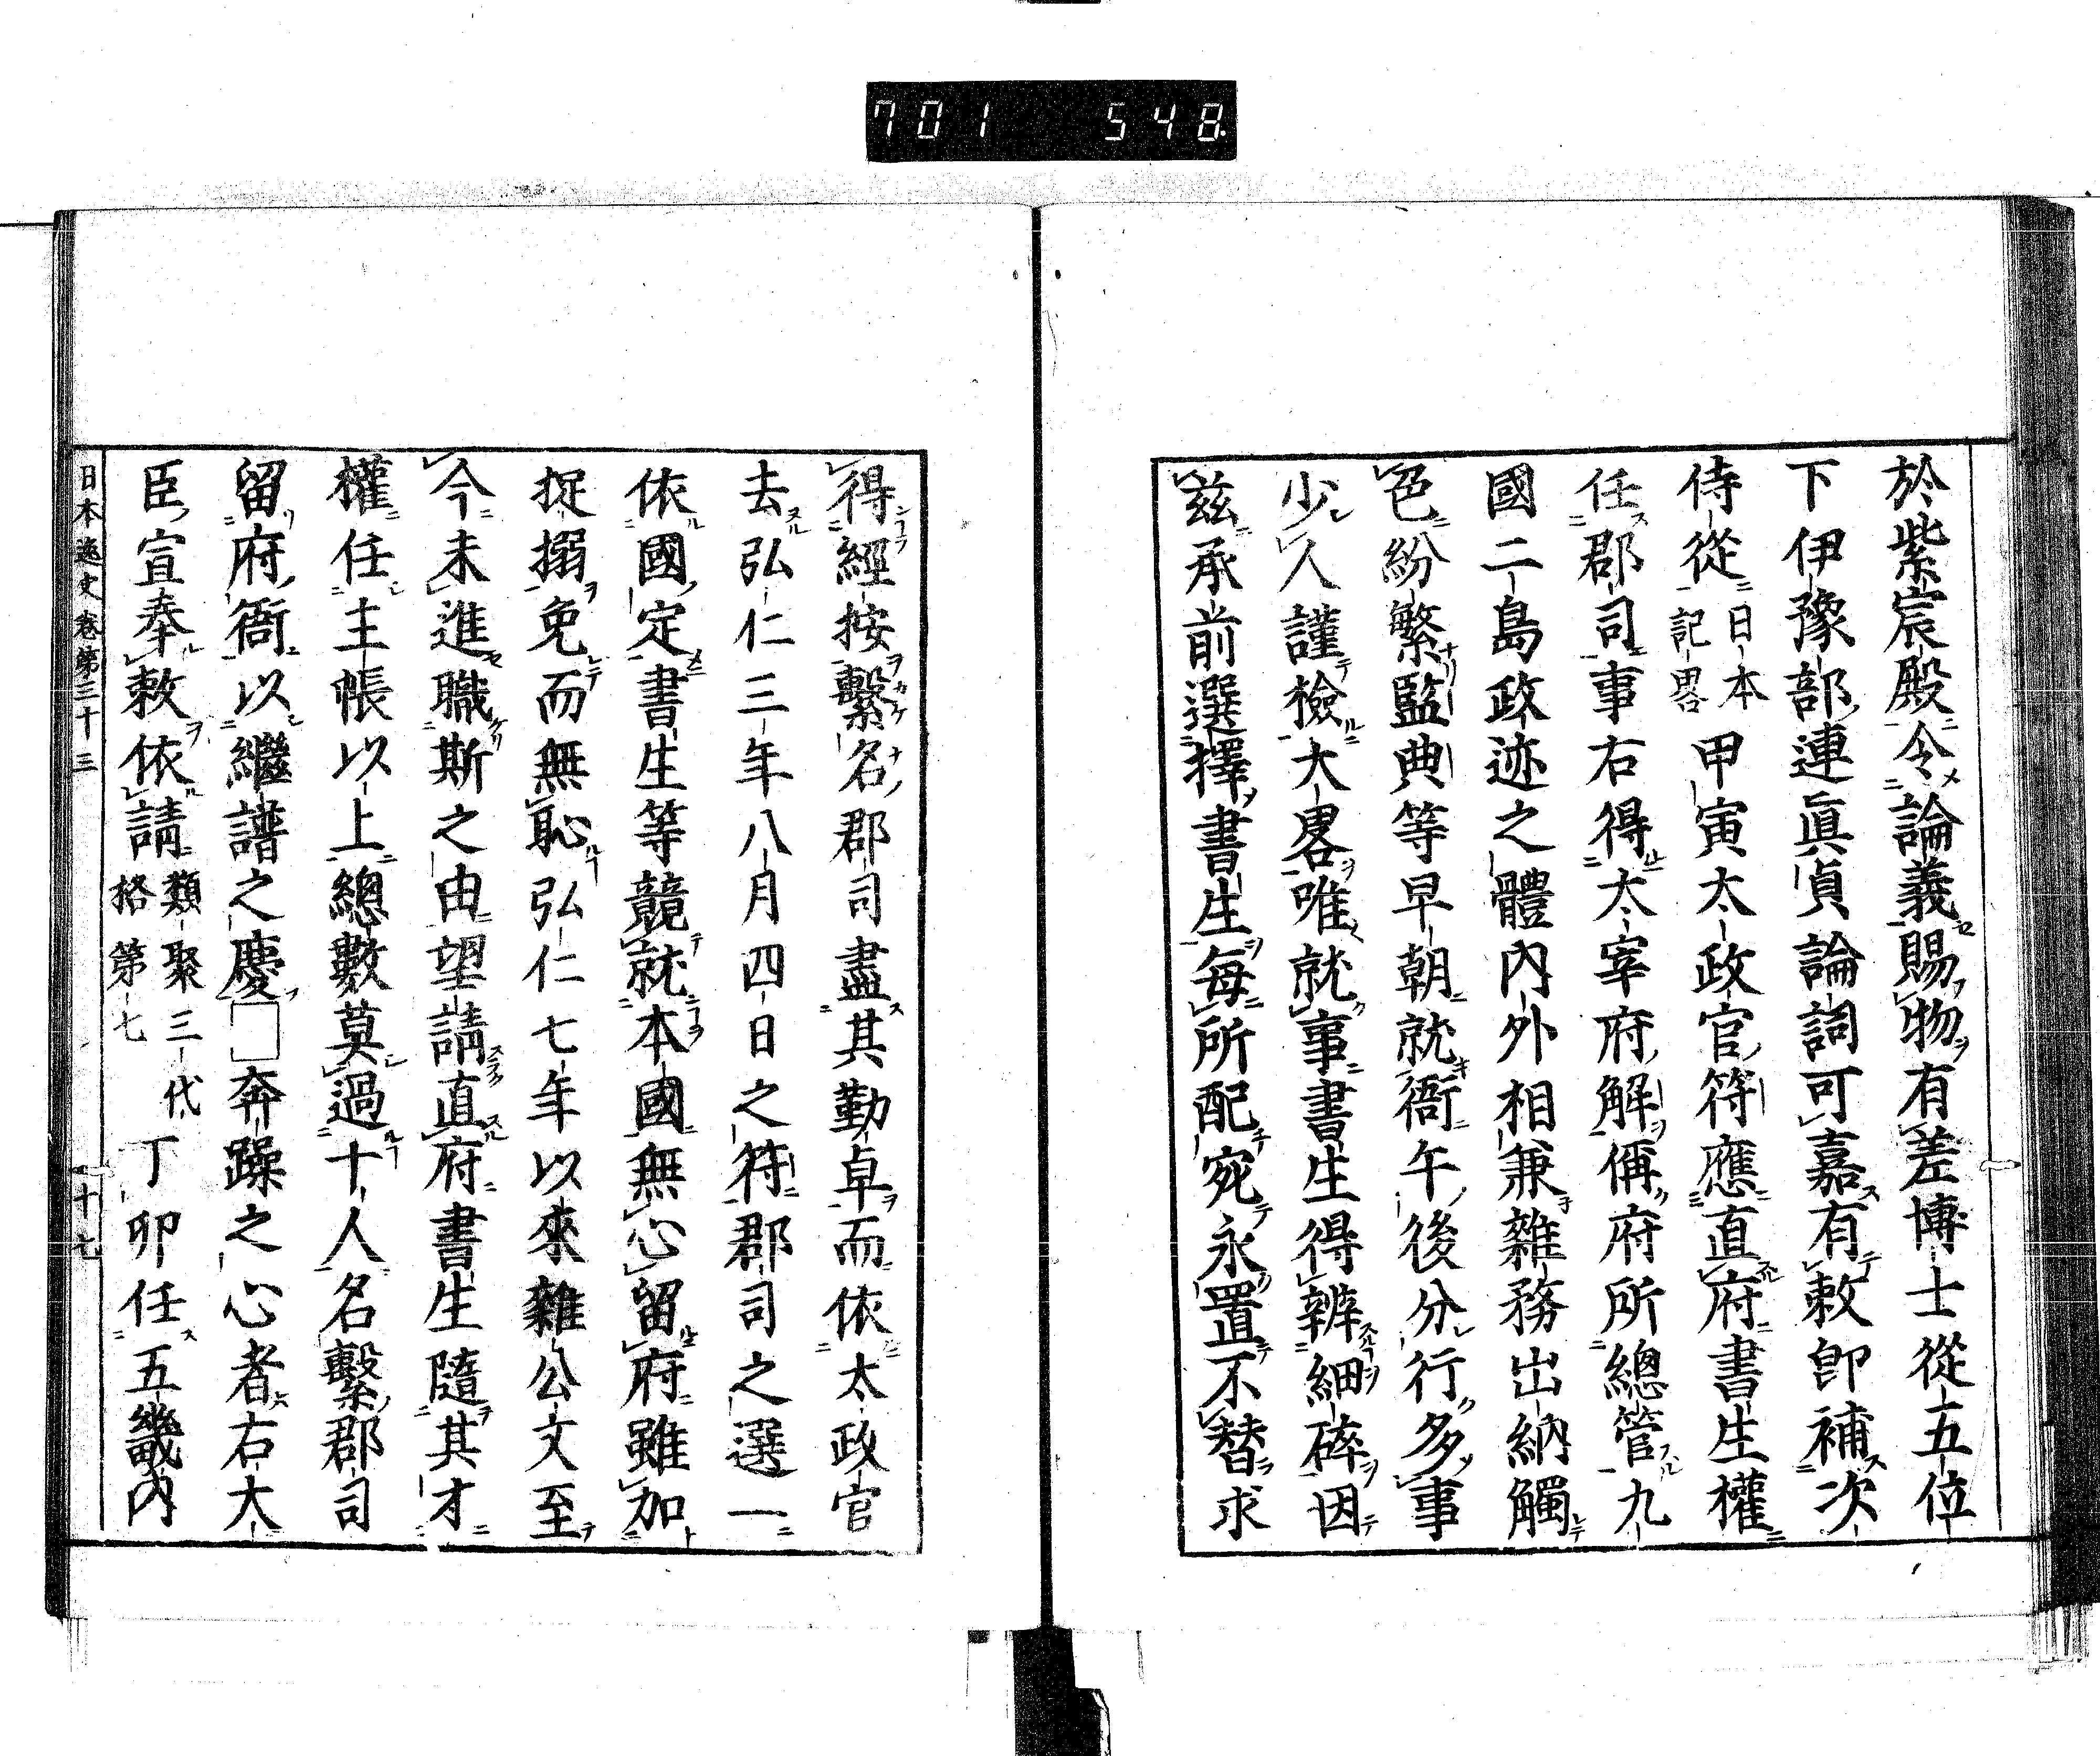 701 548
於紫宸殿令論義賜物有差博士從五位
下伊豫部連眞貞論詞可嘉有敕卽補次
侍從日本記畧甲寅太政官符應直府書生權
任郡司事右得太宰府解偁府所總管九
國二島政迹之體內外相兼雜務出納觸
色紛繁監典等早朝就衙午後分行多事
少人謹檢大畧唯就事書生得辨細碎因
茲承前選擇書生每所配宛永置不替求
得經按繫名郡司盡其勤卓而依太政官
去弘仁三年八月四日之符郡司之選一
依國定書生等競就本國無心留府雖加
捉搦免而無恥弘仁七年以來雜公文至
今未進職斯之由望請直府書生隨其才
權任主帳以上總數莫過十人名繫郡司
留府衙以繼譜之慶□奔躁之心者右大
臣宣奉敕依請類聚三代格第七丁卯任五畿內
日本逸史卷第三十三 十七